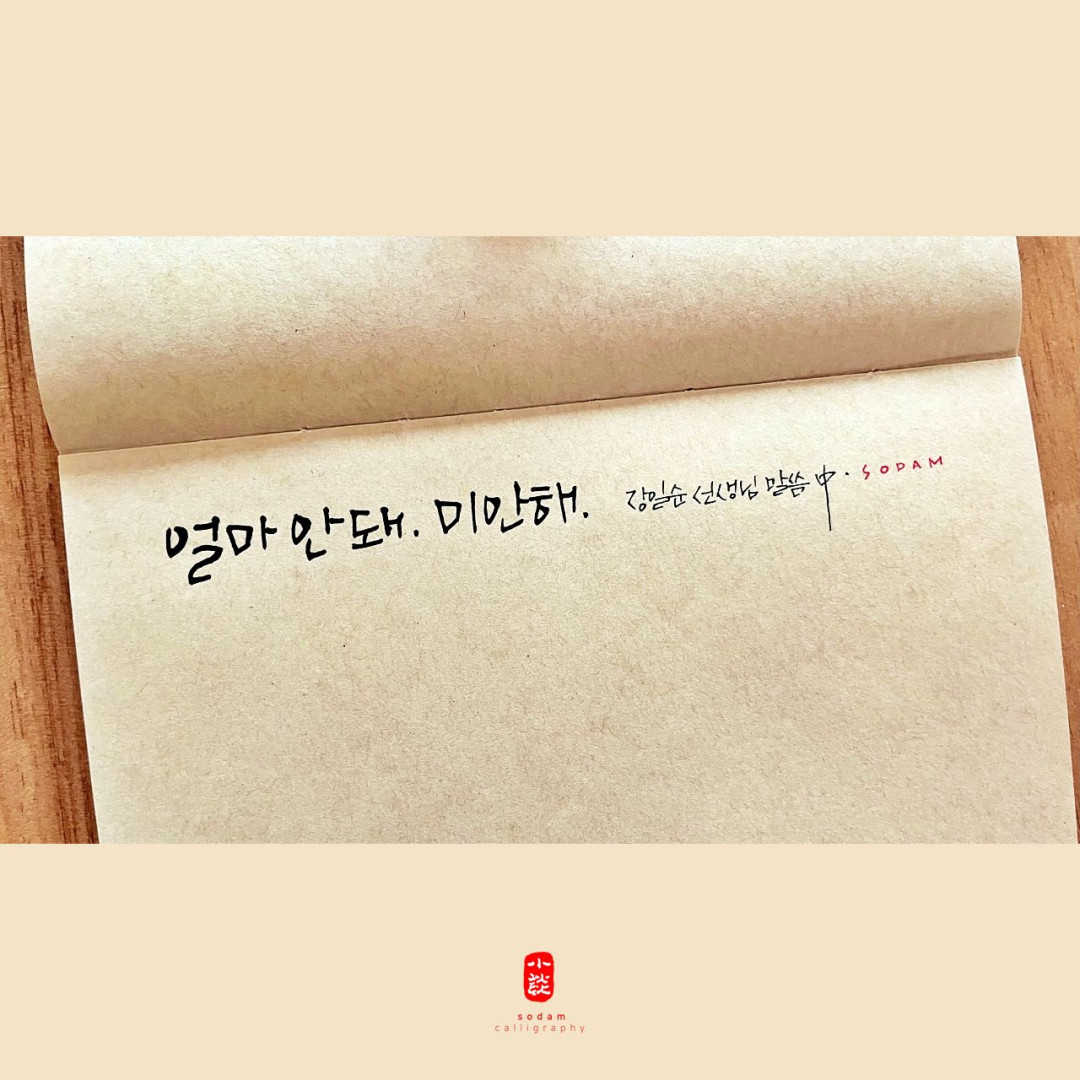 얼마 안 돼. 미안해. 장일순 선생님 말씀 中. SODAM
小談
sodam
calligraphy